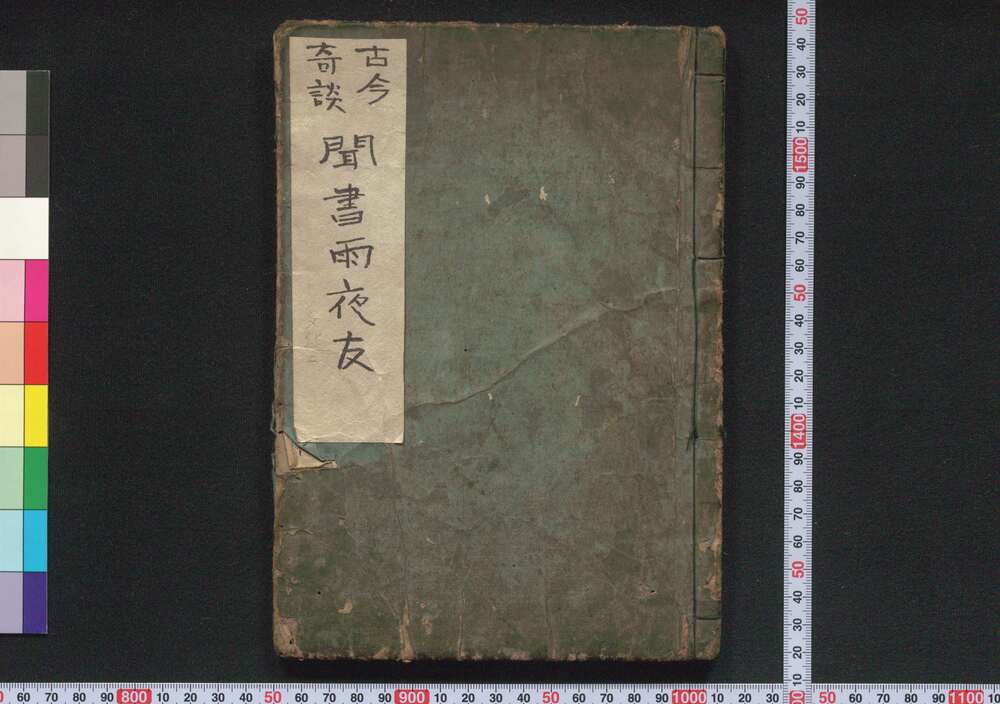 古今
奇談
聞書雨夜友
50
10 20 30 40 50 60 70 80 90 1400 10 20 30 40 50 60 70 80 90 1500 10 20 30 40 50
60 70 80 90 800 10 20 30 40 50 60 70 80 90 900 10 20 30 40 50 60 70 80 90 1000 10 20 30 50 60 70 80 90 1100 10